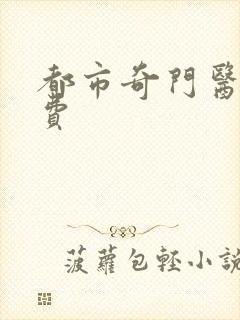 都市奇門醫
費
菠蘿包輕小說